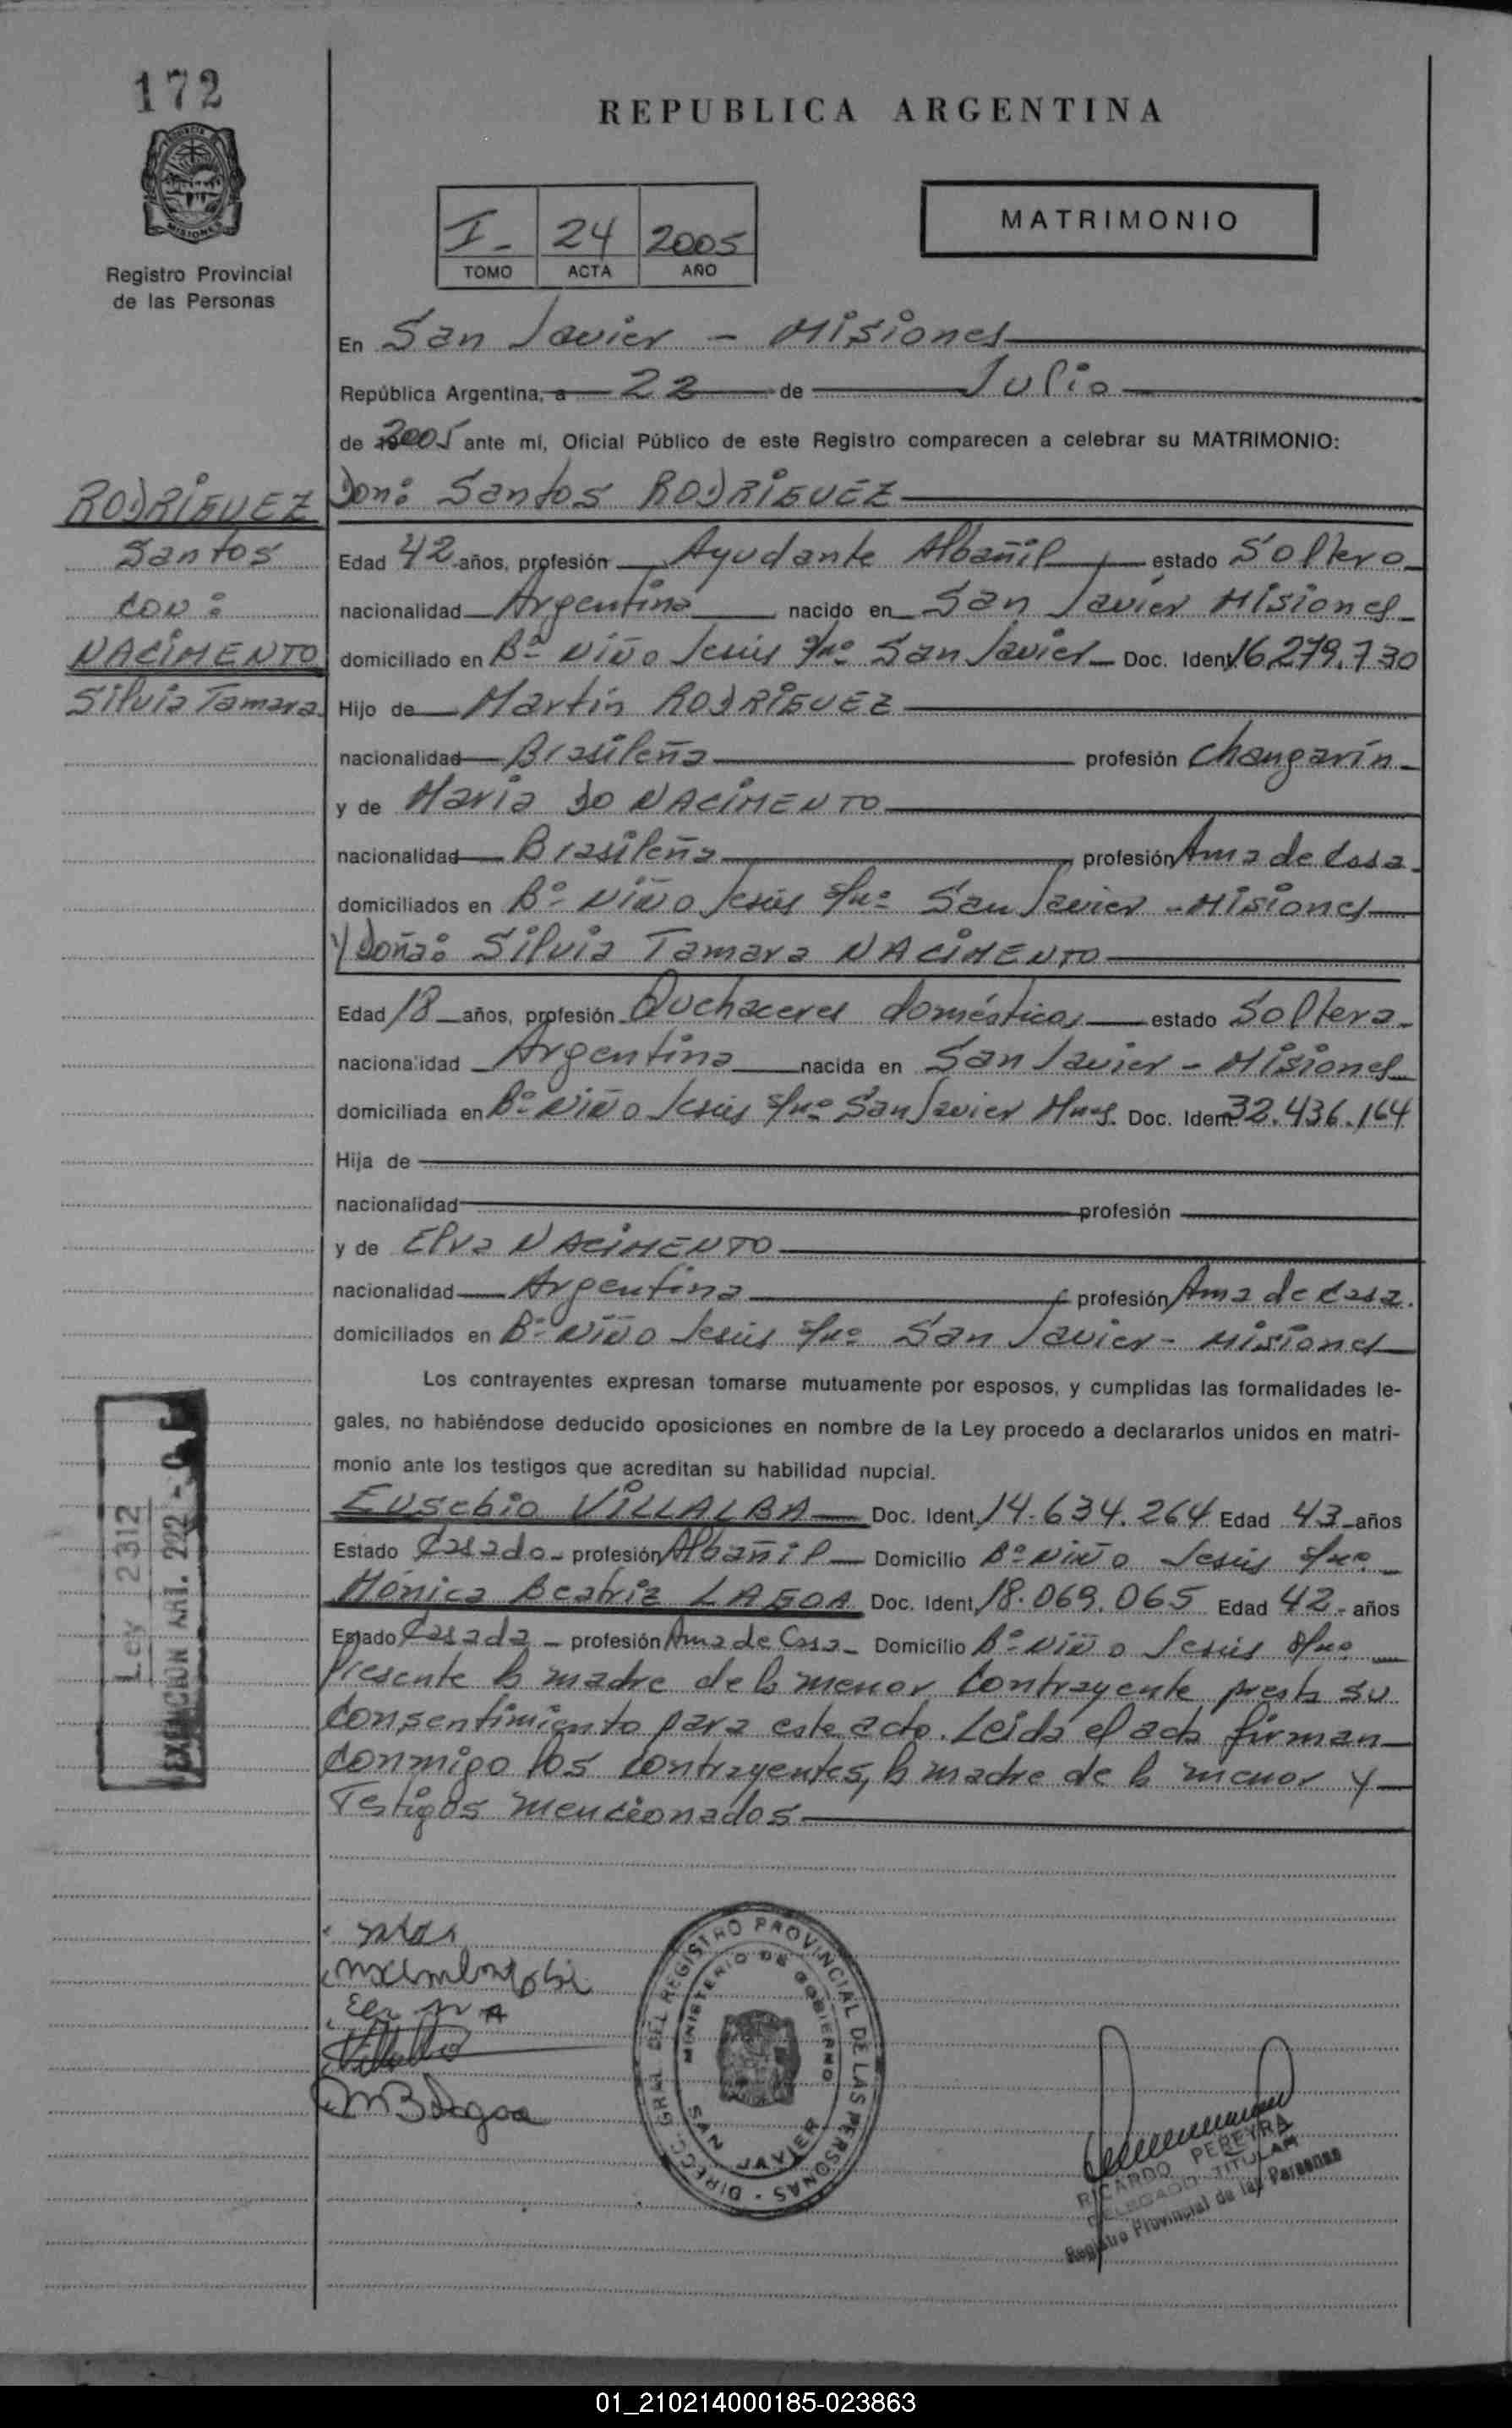 172
REPUBLICA ARGENTINA
MISIONES
Registro Provincial
de las Personas
I - 24 2005
TOMO ACTA AÑO
MATRIMONIO
En San Javier - Misiones
República Argentina, a 22 de Julio
de 2005 ante mí, Oficial Público de este Registro comparecen a celebrar su MATRIMONIO:
RODRIGUEZ
Santos
con:
NACIMENTO
Silvia Tamara
Don: Santos RODRIGUEZ
Edad 42 años, profesión Ayudante Albañil estado Soltero
nacionalidad Argentina nacido en San Javier Misiones
domiciliado en Bº Niño Jesús s/nº San Javier Doc. Ident. 16.279.730
Hijo de Martín RODRIGUEZ
nacionalidad Brasileña profesión Changarín
y de María DO NACIMENTO
nacionalidad Brasileña profesión Ama de Casa
domiciliados en Bº Niño Jesús s/nº San Javier - Misiones
y Doña: Silvia Tamara NACIMENTO
Edad 18 años, profesión Quehaceres domésticos estado Soltera
nacionalidad Argentina nacida en San Javier - Misiones
domiciliada en Bº Niño Jesús s/nº San Javier Mnes. Doc. Ident. 32.436.164
Hija de
nacionalidad profesión
y de Elva NACIMENTO
nacionalidad Argentina profesión Ama de Casa.
domiciliados en Bº Niño Jesús s/nº San Javier - Misiones
Los contrayentes expresan tomarse mutuamente por esposos, y cumplidas las formalidades le-
gales, no habiéndose deducido oposiciones en nombre de la Ley procedo a declararlos unidos en matri-
monio ante los testigos que acreditan su habilidad nupcial.
Eusebio VILLALBA Doc. Ident. 14.634.264 Edad 43 años
Estado Casado - profesión Albañil Domicilio Bº Niño Jesús s/nº
Mónica Beatriz LAGOA Doc. Ident. 18.069.065 Edad 42 - años
Estado Casada - profesión Ama de Casa - Domicilio Bº Niño Jesús s/nº
Presente la madre de la menor contrayente presta su
consentimiento para este acto. Leída el acta firman
conmigo los contrayentes, la madre de la menor y
Testigos mencionados
Ley 2312
EXENCION ART. 222
DIREC. GRAL. DEL REGISTRO PROVINCIAL DE LAS PERSONAS
MINISTERIO DE GOBIERNO
SAN JAVIER
RICARDO PEREYRA
DELEGADO TITULAR
Registro Provincial de las Personas
01_210214000185-023863